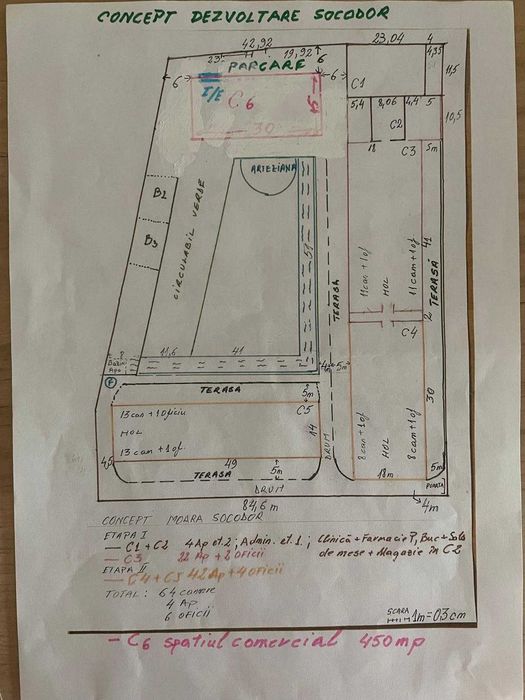 CONCEPT DEZVOLTARE SOCODOR
42,92
23,04
4
23
19,92
4,35
PARCARE
6
6
6
C1
11,5
I/E
C6
15
5,4
8,06
4,4
5
C2
10,5
30
18
C3
5m
ARTEZIANA
B2
CIRCULABIL VERDE
B3
51
TERASA
11 cam + 1 of
HOL
11 cam + 1 of
41
TERASĂ
2
C4
8
Bazin
Apa
11,6
41
4m
5m
TERASA
5m
30
13 cam + 1 oficiu
C5
HOL
14
13 cam + 1 of.
8 cam + 1 of
HOL
8 cam + 1 of
DRUM
4,5
49
5m
18m
5m
TERASA
DRUM
POARTA
82,6 m
4m
CONCEPT MOARA SOCODOR
ETAPA I
— C1 + C2 4 Ap et.2; Admin. et.1.; Clinică + Farmacie P, Buc + Sala
de mese + Magazie în C2
— C3 22 Ap + 2 oficii
ETAPA II
— C4 + C5 42 Ap + 4 oficii
TOTAL: 64 camere
4 Ap
6 oficii
SCARA
1m = 0,3 cm
— C6 spatiul comercial 450 mp